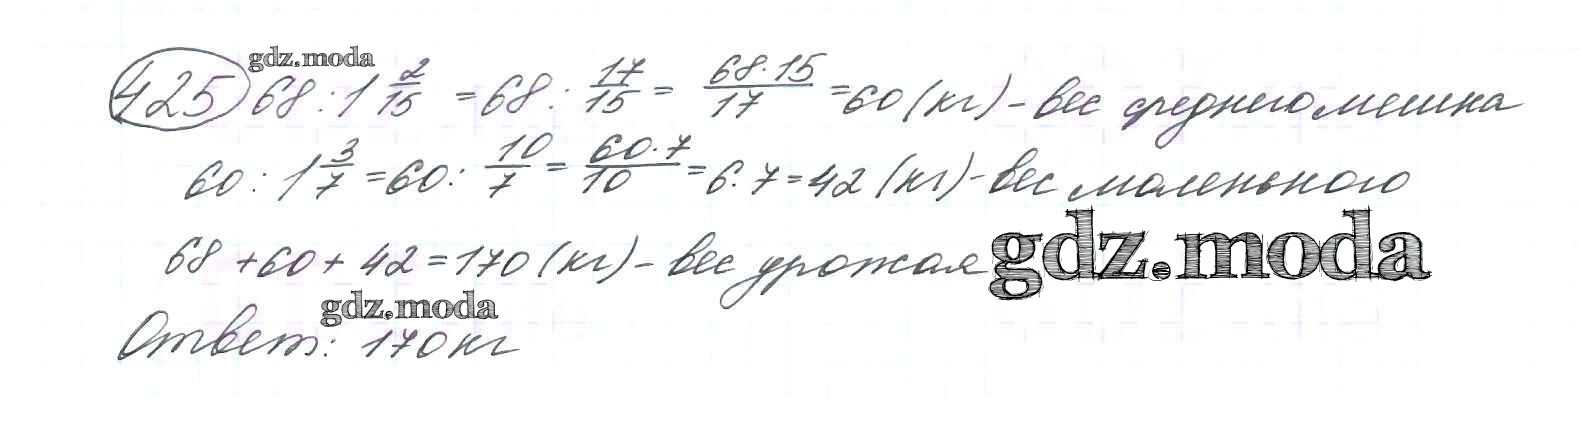 gdz.moda
425 68 : 1 2/15 = 68 : 17/15 = 68·15/17 = 60 (кг) - вес среднего мешка
60 : 1 3/7 = 60 : 10/7 = 60·7/10 = 6·7 = 42 (кг) - вес маленького
68 + 60 + 42 = 170 (кг) - вес урожая gdz.moda
gdz.moda
Ответ: 170 кг